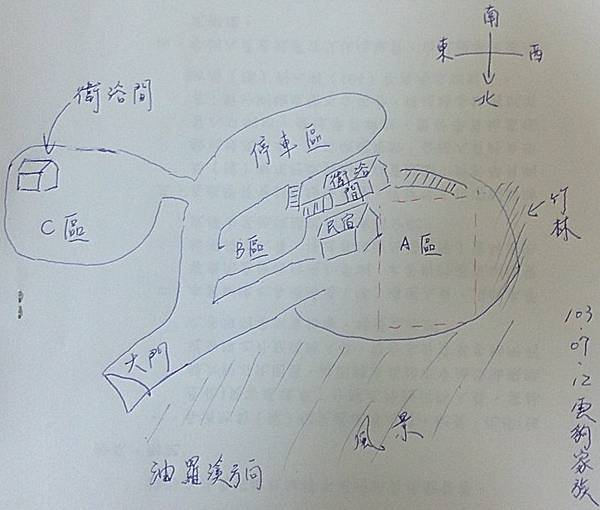 南
東 西
北
衛浴間
停車區
衛浴間
竹林
C區
B區
民宿
A區
大門
風景
油羅溪方向
103.07.12 雲豹家族